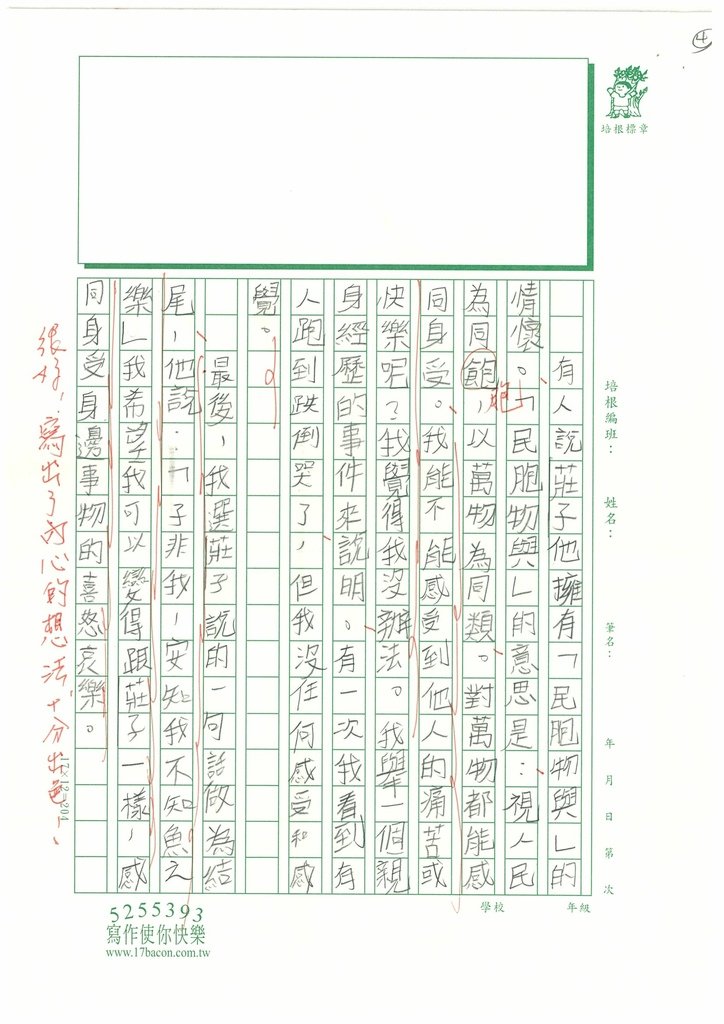 4
培根標章
培根編班：
姓名：
筆名：
年 月 日 第 次
學校
年級
有人說莊子他擁有「民胞物與」的
情懷。「民胞物與」的意思是：視人民
為同飽，以萬物為同類。對萬物都能感
胞
同身受。我能不能感受到他人的痛苦或
快樂呢？我覺得我沒辦法。我舉一個親
身經歷的事件來說明。有一次我看到有
人跑到跌倒哭了，但我沒任何感受和感
覺。
最後，我選莊子說的一句話做為結
尾，他說：「子非我，安知我不知魚之
樂」我希望我可以變得跟莊子一樣，感
同身受身邊事物的喜怒哀樂。
很好，寫出了內心的想法，十分出色！
17×12=204
5255393
寫作使你快樂
www.17bacon.com.tw